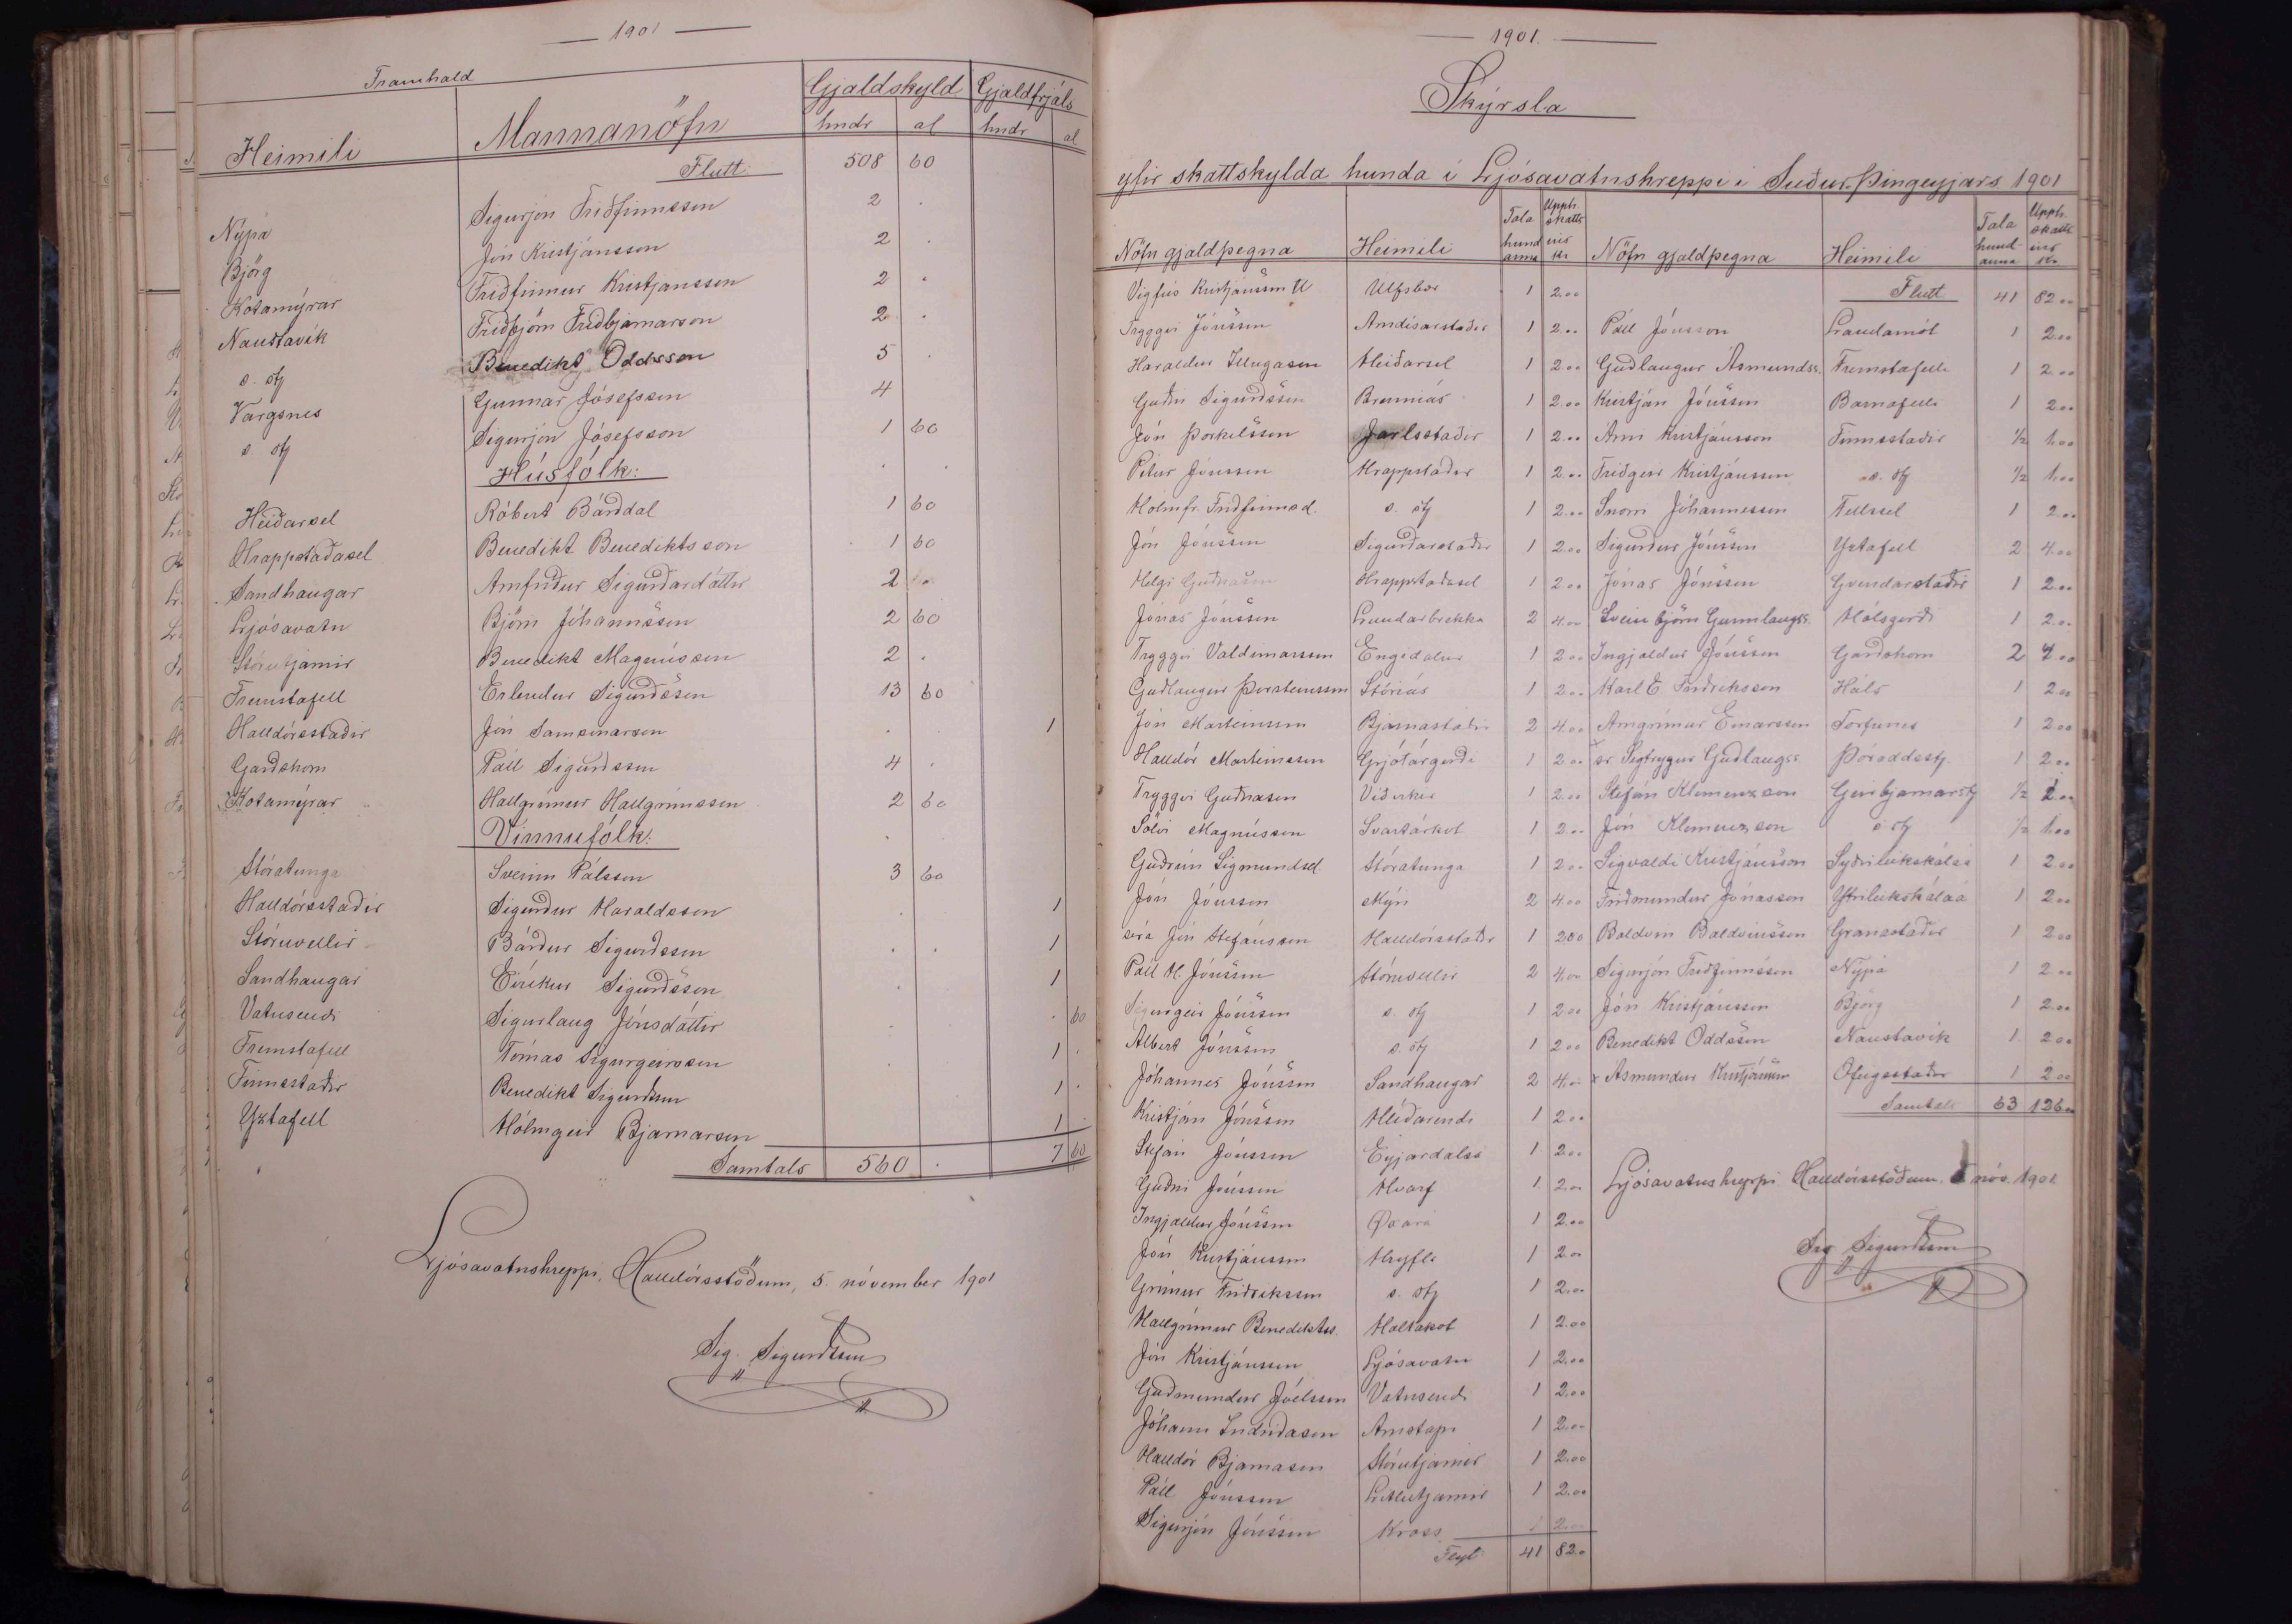 1901
Framhald
Heimili Mannanöfn Gjaldskyld Gjaldfrjáls
hndr al hndr al
Flutt: 508 60
Nýpá Sigurjón Friðfinnsson 2 .
Björg Jón Kristjánsson 2 .
Kotamýrar Friðfinnur Kristjánsson 2 .
Naustavík Friðbjörn Friðbjarnarson 2 .
s. stj Benedikt Oddsson 5 .
Vargsnes Gunnar Jósefsson 4
s. stj Sigurjón Jósefsson 1 60
Húsfólk: . .
Heiðarsel Róbert Bárðdal 1 60
Hrappstaðasel Benedikt Benediktsson 1 60
Sandhaugar Arnfríður Sigurðardóttir 2
Ljósavatn Björn Jóhannsson 2 60
Stórutjarnir Benedikt Magnússon 2 .
Fremstafell Erlendur Sigurðsson 13 60
Halldórsstaðir Jón Samsonarson . . 1
Garðshorn Páll Sigurðsson 4 .
Kotamýrar Hallgrímur Hallgrímsson 2 60
Vinnufólk: .
Stóratunga Sveinn Pálsson 3 60
Halldórsstaðir Sigurður Haraldsson . 1
Stóruvellir Bárður Sigurðsson . . 1
Sandhaugar Eiríkur Sigurðsson . 1
Vatnsendi Sigurlaug Jónsdóttir . . 60
Fremstafell Tómas Sigurgeirsson . 1 .
Finnsstaðir Benedikt Sigurðsson 1 .
Yztafell Hólmgeir Bjarnarson 1 .
Samtals 560 . 7 60
Ljósavatnshreppi, Halldórsstöðum, 5. nóvember 1901
Sig. Sigurðsson
1901.
Skýrsla
yfir skattskylda hunda í Ljósavatnshreppi í Suður-Þingeyjars 1901
Nöfn gjaldþegna Heimili Tala hundanna Upph. skattsins kr
Vigfús Kristjánsson Úlfsbær 1 2.00
Tryggvi Jónsson Arndísarstaðir 1 2.00
Haraldur Illugason Heiðarsel 1 2.00
Guðni Sigurðsson Brunnás 1 2.00
Jón Þorkelsson Jarlsstaðir 1 2.00
Pétur Jónsson Hrappstaðir 1 2.00
Hólmfr. Friðfinnsd. s. stj 1 2.00
Jón Jónsson Sigurðarstaðir 1 2.00
Helgi Guðnason Hrappstaðasel 1 2.00
Jónas Jónsson Lundarbrekka 2 4.00
Tryggvi Valdimarsson Engidalur 1 2.00
Guðlaugur Þorsteinsson Stóriás 1 2.00
Jón Marteinsson Bjarnastaðir 2 4.00
Halldór Marteinsson Grjótárgerði 1 2.00
Tryggvi Guðnason Víðirker 1 2.00
Sölvi Magnússon Svartárkot 1 2.00
Guðrún Sigmundsd Stóratunga 1 2.00
Jón Jónsson Mýri 2 4.00
séra Jón Stefánsson Halldórsstaðir 1 2.00
Páll H. Jónsson Stóruvellir 2 4.00
Sigurgeir Jónsson s. stj 1 2.00
Albert Jónsson s. stj 1 2.00
Jóhannes Jónsson Sandhaugar 2 4.00
Kristján Jónsson Hlíðarendi 1 2.00
Stefán Jónsson Eyjardalsá 1 2.00
Guðni Jónsson Hvarf 1 2.00
Ingjaldur Jónsson Øxará 1 2.00
Jón Kristjánsson Hryfla 1 2.00
Grímur Friðriksson s. stj 1 2.00
Hallgrímur Benediktss. Holtakot 1 2.00
Jón Kristjánsson Ljósavatn 1 2.00
Guðmundur Jóelsson Vatnsendi 1 2.00
Jóhann Indriðason Arnstapi 1 2.00
Halldór Bjarnason Stórutjarnir 1 2.00
Páll Jónsson Litlutjarnir 1 2.00
Sigurjón Jónsson Kross 1 2.00
Flyt 41 82.00
Nöfn gjaldþegna Heimili Tala hundanna Upph. skattsins kr
Flutt 41 82.00
Páll Jónsson Landamót 1 2.00
Guðlaugur Ásmundss. Fremstafell 1 2.00
Kristján Jónsson Barnafell 1 2.00
Árni Kristjánsson Finnsstaðir 1/2 1.00
Friðgeir Kristjánsson s. stj 1/2 1.00
Snorri Jóhannesson Fellssel 1 2.00
Sigurður Jónsson Yztafell 2 4.00
Jónas Jónsson Gvendarstaðir 1 2.00
Sveinbjörn Gunnlaugss. Hólsgerði 1 2.00
Ingjaldur Jónsson Garðshorn 2 4.00
Karl E Friðriksson Háls 1 2.00
Arngrímur Einarsson Torfunes 1 2.00
sr. Sigtryggur Guðlaugss. Þóroddsstj. 1 2.00
Stefán Klemenzson Geirbjarnarstj 1/2 1.00
Jón Klemenzson s. stj 1/2 1.00
Sigvaldi Kristjánsson Syðrileikskálaá 1 2.00
Friðmundur Jónasson Ytrileikskálaá 1 2.00
Baldvin Baldvinsson Granastaðir 1 2.00
Sigurjón Friðfinnsson Nýpá 1 2.00
Jón Kristjánsson Björg 1 2.00
Benedikt Oddsson Naustavík 1 2.00
x Ásmundur Kristjánsson Ófeigsstaðir 1 2.00
Samtals 63 126.00
Ljósavatnshreppi Halldórsstöðum, 5 nóv. 1901.
Sig Sigurðsson